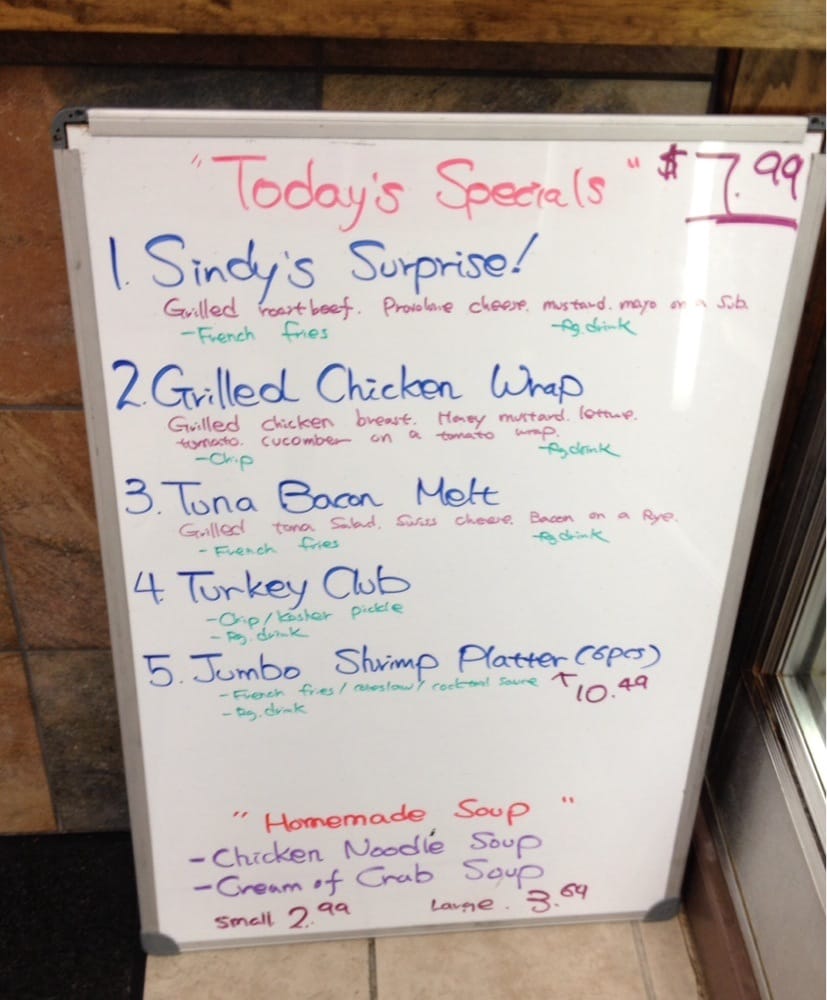 "Today's Specials" $7.99
1. Sindy's Surprise!
Grilled roast beef. Provolone cheese. mustard. mayo on a Sub.
-French fries -Rg.drink
2. Grilled Chicken Wrap
Grilled chicken breast. Honey mustard. lettuce.
tomato. cucomber on a tomato wrap.
-Chip -Rg.drink
3. Tuna Bacon Melt
Grilled tuna Salad. Swiss cheese. Bacon on a Rye.
- French fries -Rg.drink
4. Turkey Club
-Chip/kosher pickle
-Rg.drink
5. Jumbo Shrimp Platter (6pcs)
- French fries/coleslaw/cocktail sauce ↑ 10.49
- Rg.drink
"Homemade Soup"
- Chicken Noodle Soup
- Cream of Crab Soup
Small 2.99 Large. 3.69